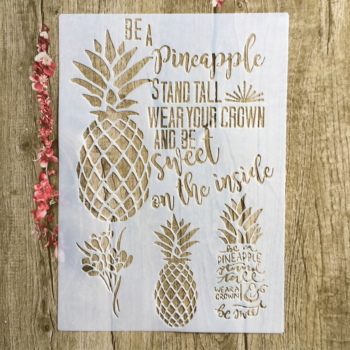 BE A
Pineapple
STAND TALL
WEAR YOUR CROWN
AND BE
sweet
on the inside
be a
PINEAPPLE
stand
tall
WEAR A
CROWN &
be sweet